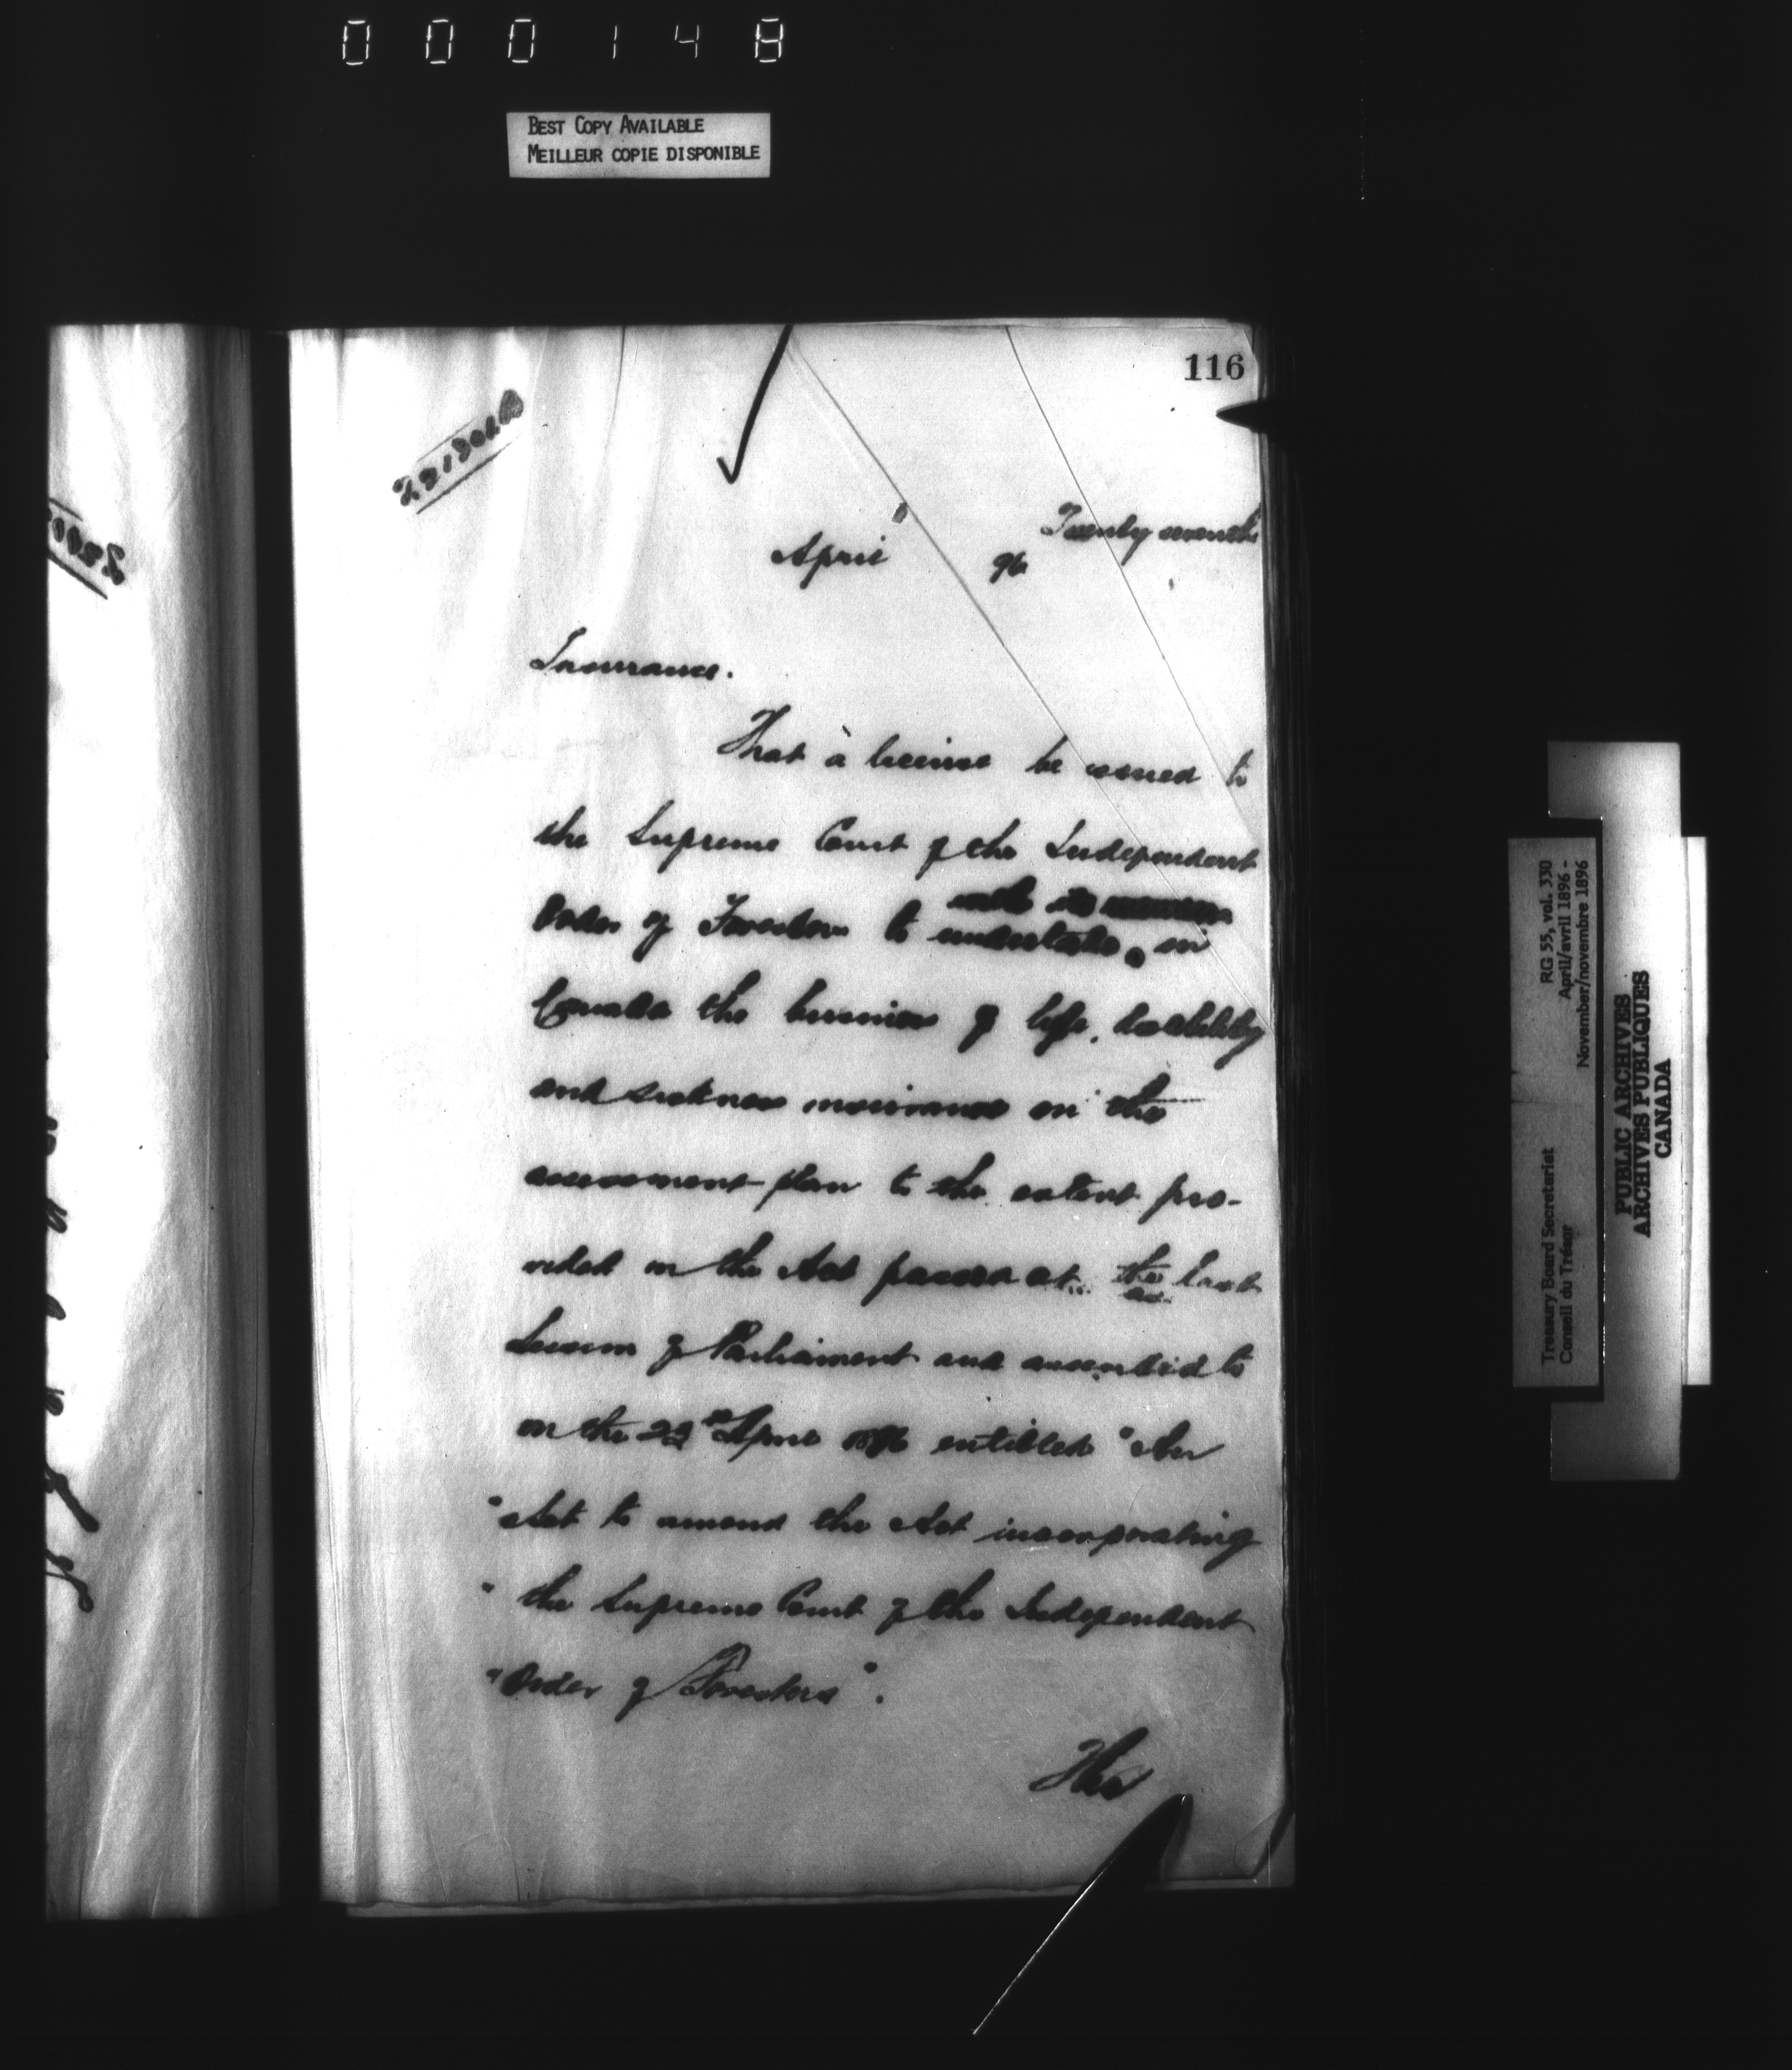 000148
BEST COPY AVAILABLE
MEILLEUR COPIE DISPONIBLE
116
Twenty seventh
April 96
Insurance.
That a license be issued to
the Supreme Court of the Independent
Order of Foresters to undertake, in
Canada the business of life, disability
and sickness insurance on the
assessment plan to the extent pro-
vided in the Act passed at the last
Session of Parliament and assented to
on the April 1896 entitled "An
"Act to amend the Act incorporating
" the Supreme Court of the Independent
"Order of Foresters".
Treasury Board Secretariat
Conseil du Trésor
RG 55, vol. 330
April/avril 1896 -
November/novembre 1896
PUBLIC ARCHIVES
ARCHIVES PUBLIQUES
CANADA